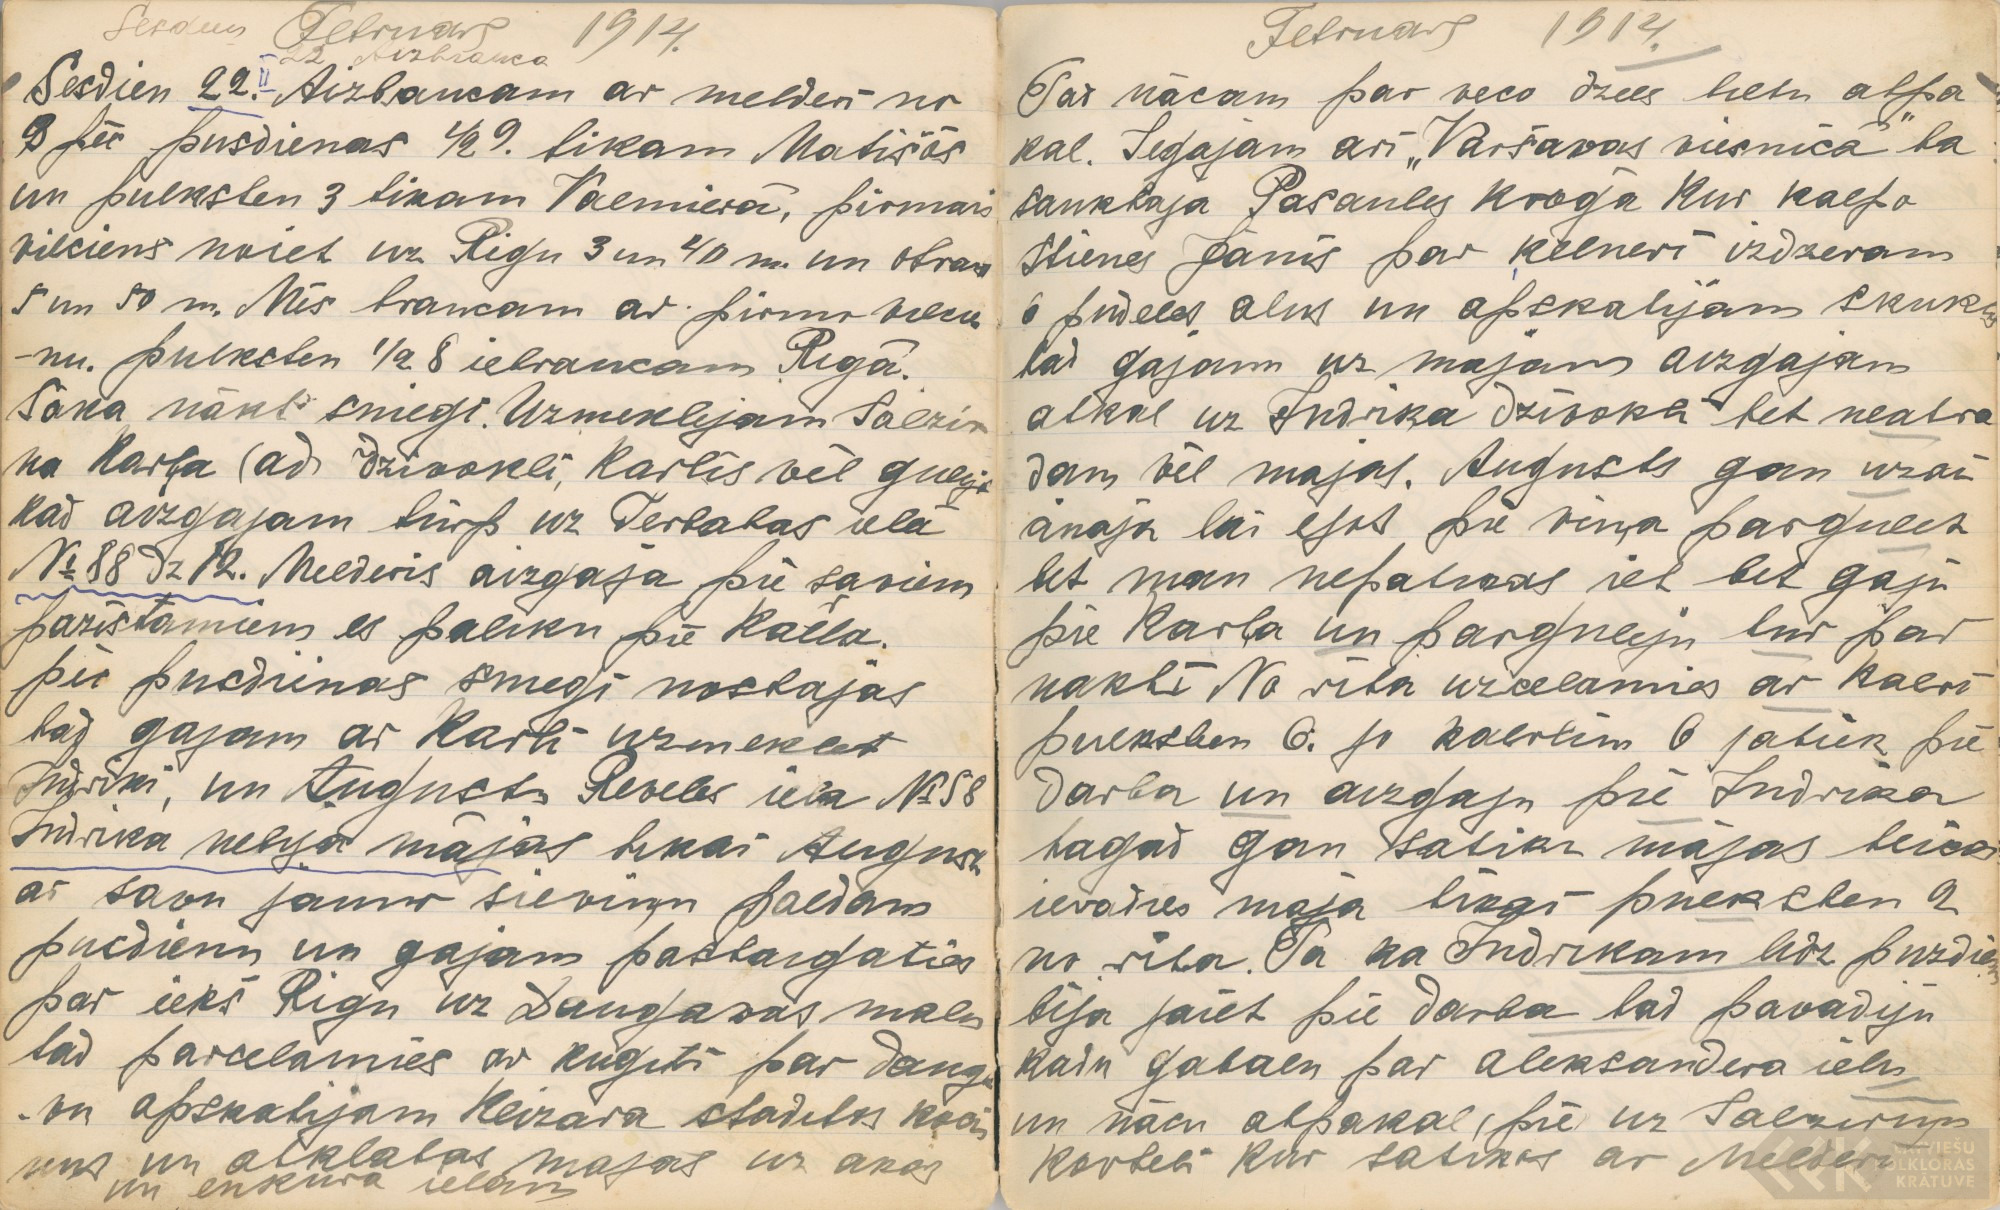 Sesdien Februars 1914.
22 Aizbrauca
Sesdien 22. II Aizbraucam ar melderi no
pēc pusdienas 1/2 9. tikam Matišōs
un pulksten 3 tikam Valmierā, pirmais
vilciens noiet uz Rigu 3 un 40 m. un otrais
5 un 50 m. Mēs braucam ar pirmo vilcie
-nu. pulksten 1/2 8 iebraucam Rigā.
Saka nākt sniegi. Uzmeklejam Salzir
na Karļa (ad. dzivokli, Karlis vēl guleja
kad aizgajam turp uz Terbatas ielā
№ 88 dz 12. Melderis aizgaja pie saviem
pazīstamiem es paliku pie Kārļa.
pēc pusdienas sniegi nostajas
tad gajam ar Karli uzmeklet
Indriķi, un Augusts Reveles iela № 58
Indrika nebija mājas tikai Augusts
ar savu jauno sieviņu paēdam
pusdienu un gajam pastaigaties
par iekš Rigu uz Daugavas malu
tad parcelamies ar kugiti par daugu
-vu apskatijam Keizara stadītos kociņ
us un atklatas majas uz akas
un enkura ielam
Februars 1914.
Tad nācam par veco dzels tiltu atpa
kal. Iegajam ari „Varšavas viesnicā" ta
sauktaja Pasaules krogā kur kalpo
Stienes Jānis par kelneri izdzeram
6 pudeles alus un apskatijam skukus
tad gajam uz majam aizgajam
atkal uz Indrika dzivokli bet neatra
dam vēl majas. Augusts gan uzai
cinaja lai ejot pie viņa pargulet
bet man nepatikas iet bet gaju
pie Karļa un parguleju tur par
nakti No rita uzcelamies ar Kalri
pulksten 6. jo kalrlim 6 jatiek pie
darba un aizgaju pie Indrika
tagad gan satiku mājas teicas
ieradies māja tikai pulksten 2
no rita. Ta ka Indrikam lidz puzdien
bija jaiet pie darba tad pavadiju
kadu gabalu par aleksandera ielu
un nācu atpakal, pie uz Salzirnu
korteli kur satikos ar Melderi
LATVIEŠU
FOLKLORAS
KRĀTUVE